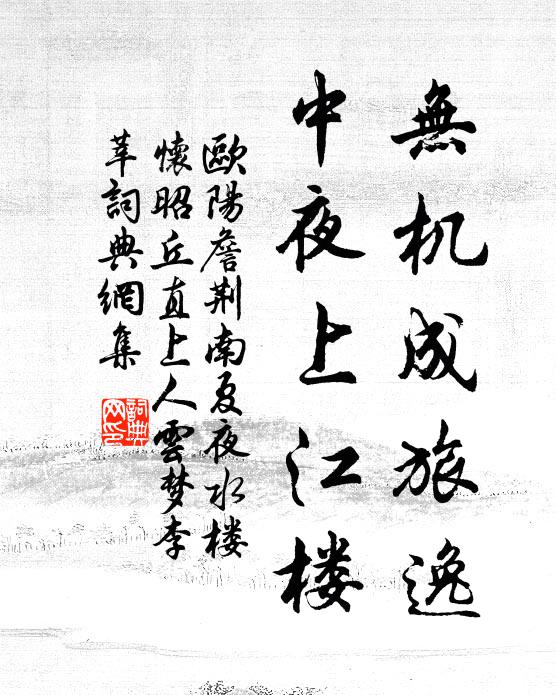 無机成旅逸
中夜上江楼
歐陽詹荆南夏夜水楼
懷昭丘直上人雲梦李
莘詞典網集
詞典
网印